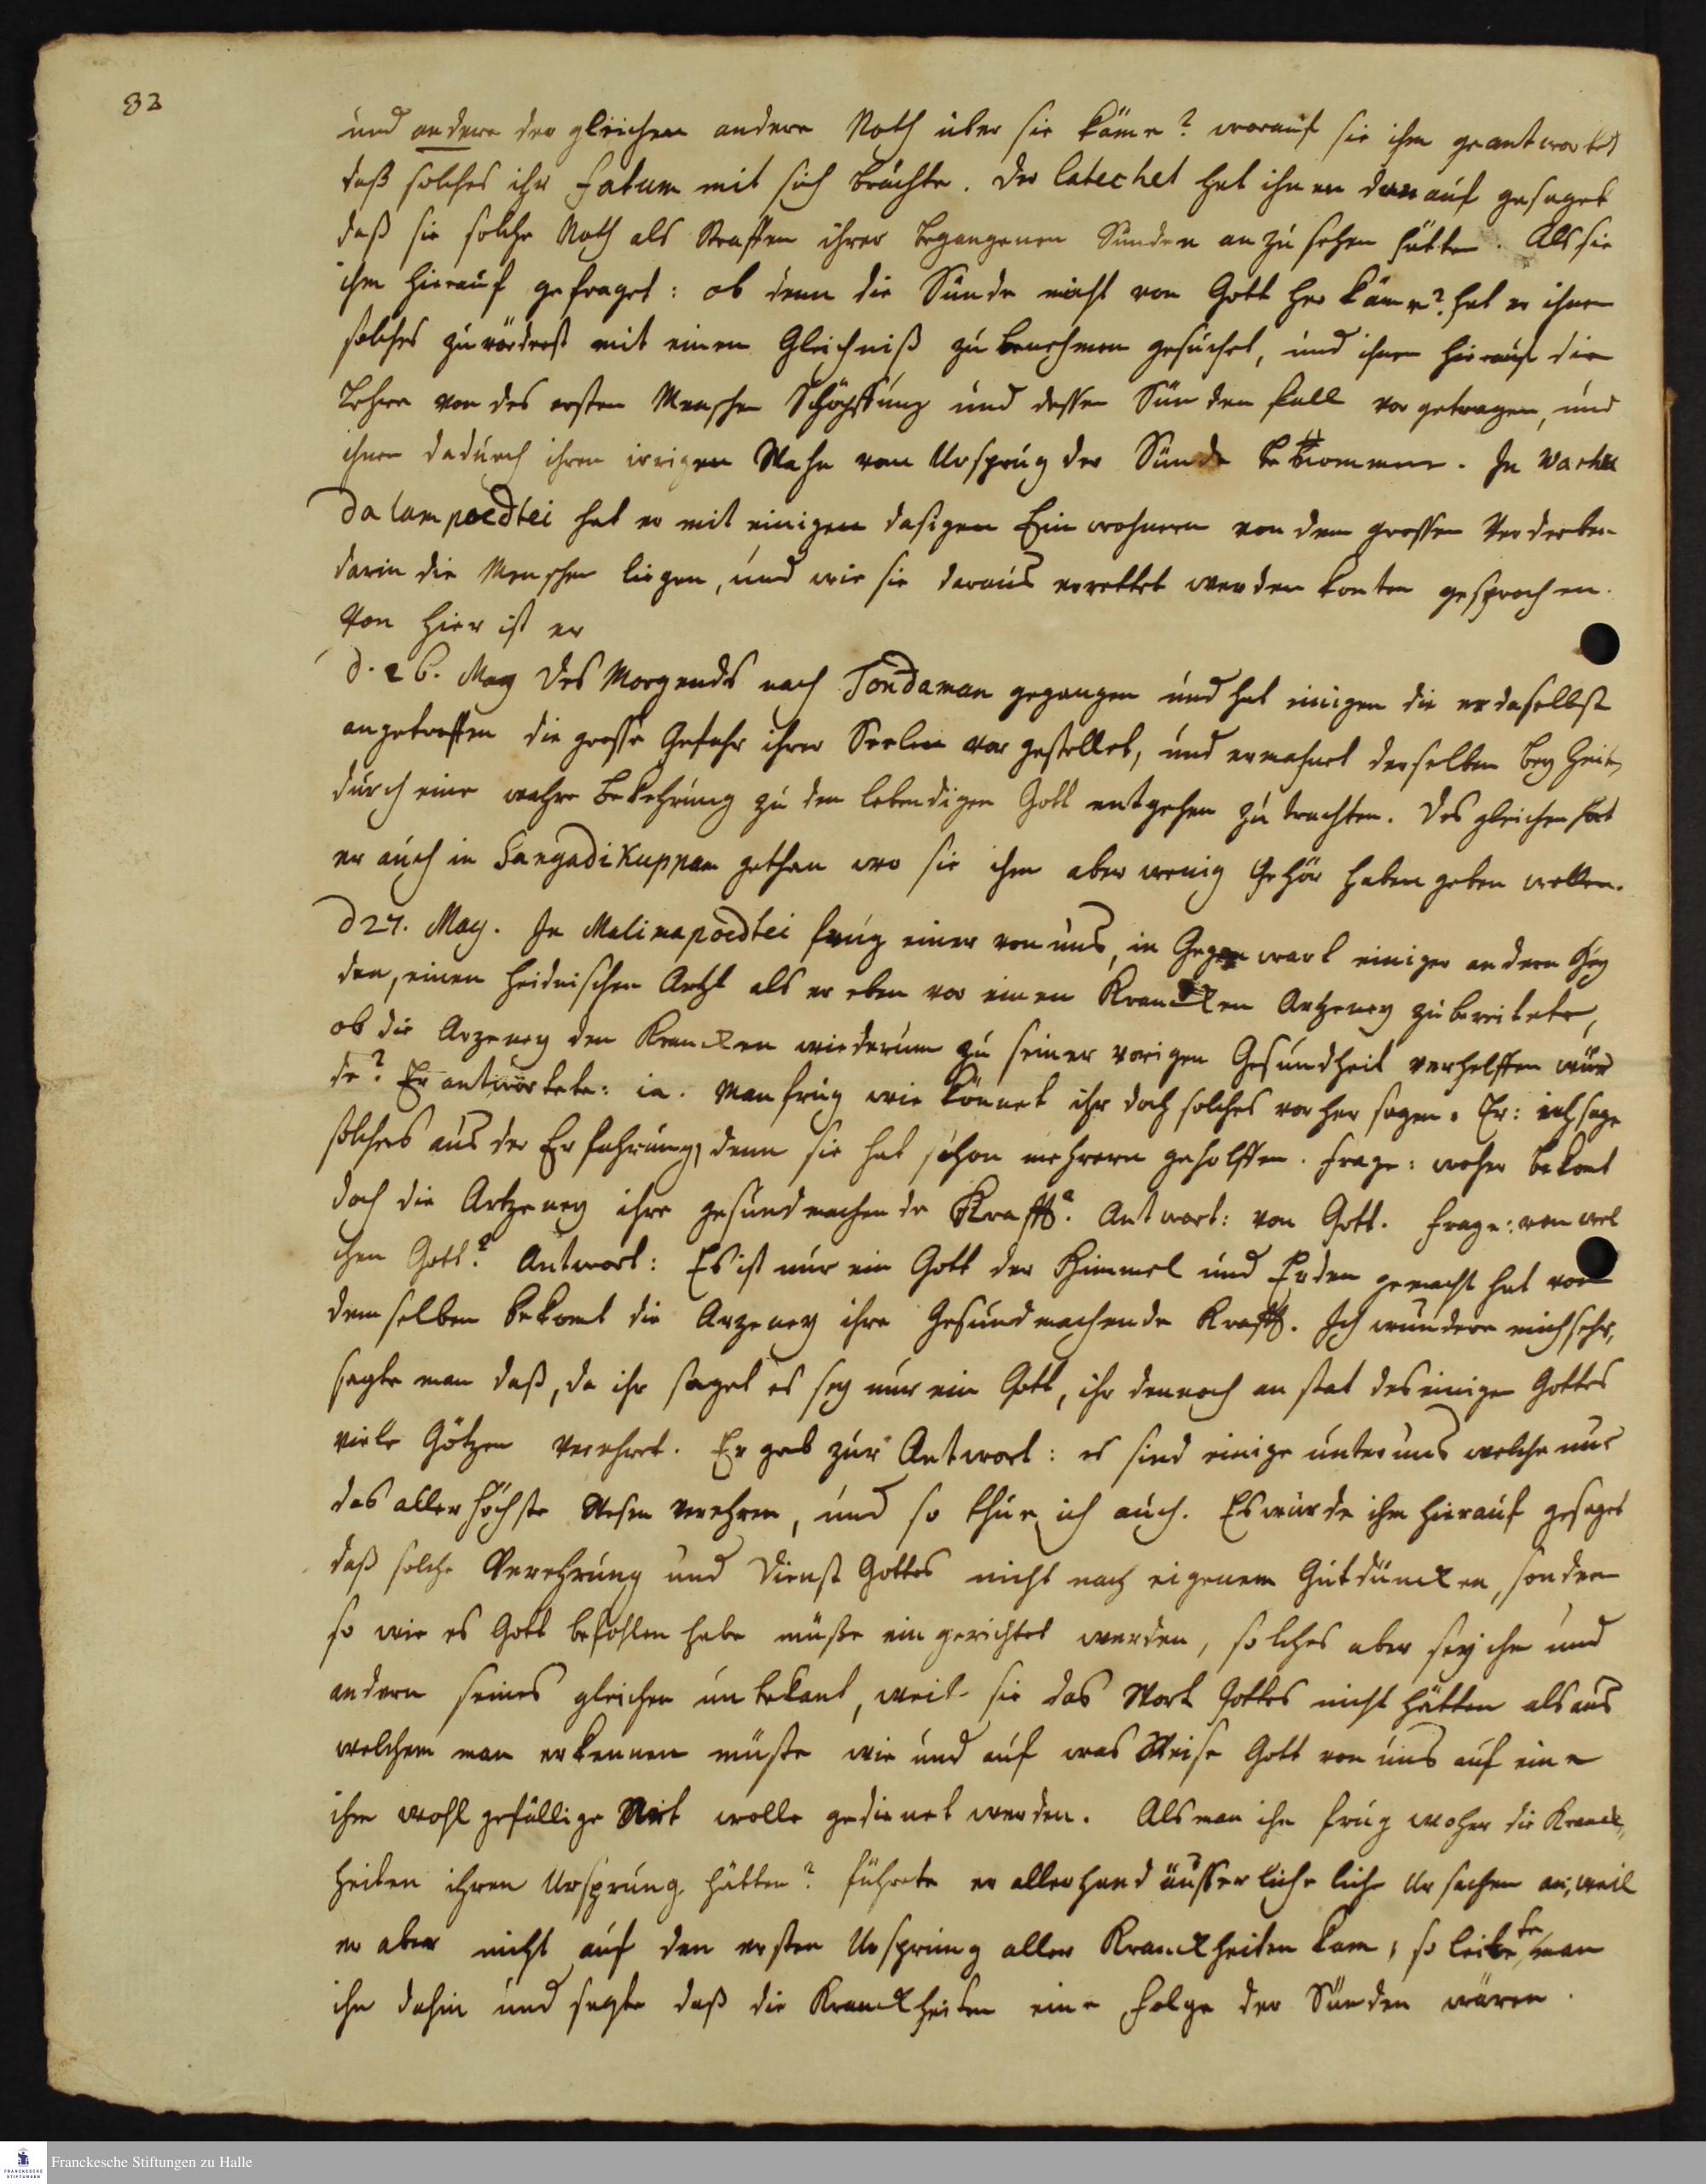 82
und andere der gleichen andere Noth über sie käme? worauf sie ihm geantwortet
daß solches ihr fatum mit sich brächte. Der Catechet hat ihnen darauf gesaget
daß sie solche Noth als Straffen ihrer begangenen Sünden an zu sehen hätten. Als sie
ihn hierauf gefraget: ob denn die Sünde nicht von Gott her käme? hat er ihnen
solches zuvörderst mit einem Gleichniß zu benehmen gesuchet, und ihnen hierauf die
Lehre von des ersten Menschen Schöpffung und dessen Sünden fall vor getragen, und
ihnen dadurch ihren irrigen Wahn vom Ursprug der Sünde benommen. In
Dalampoedtei hat er mit einigen dasigen Ein wohnern von dem grossen Verderben
darin die Menschen liegen, und wie sie daraus errettet werden konten gesprochen.
Von hier ist er
d. 26. May des Morgends nach Tondaman gegangen und hat einigen die er daselbst
angetroffen die grosse Gefahr ihrer Seelen vor gestellet, und ermahnet derselben bey Zeit
durch eine wahre Bekehrung zu dem lebendigen Gott entgehen zu trachten. Des gleichen hat
er auch in Sangadikuppam gethan wo sie ihm aber wenig Gehör haben geben wollen.
d 27. May. In Malinapoedtei frug einer von uns, in Gegenwart einiger andern Hey
den, einen heidnischen Artzt als er eben vor einen Krancken Artzeney zubereitete,
ob die Arzeney den Krancken wiederum zu seiner vorigen Gesundheit verhelffen wür
de? Er antwortete: ia. Man frug wie könnet ihr doch solches vor her sagen. Er: ich sage
solches aus der Erfahrung, denn sie hat schon mehrern geholffen. Frage: woher bekomt
doch die Artzeney ihre gesundmachende Krafft? Antwort: von Gott. Frage: von wel
chen Gott? Antwort: Es ist nur ein Gott der Himmel und Erden gemacht hat von
demselben bekomt die Arzeney ihre Gesundmachende Krafft. Ich wundere mich sehr,
sagte man daß, da ihr saget es sey nur ein Gott, ihr dennoch an stat des einigen Gottes
viele Götzen verehret. Er gab zur Antwort: es sind einige unter uns welche nur
das aller höchste Wesen verehren, und so thue ich auch. Es wurde ihm hierauf gesaget
daß solche Verehrung und Dienst Gottes nicht nach eigenem Gutdüncken, sondern
so wie es Gott befohlen habe müße ein gerichtet werden, solches aber sey ihm und
andern seines gleichen un bekant, weil sie das Wort Gottes nicht hätten als aus
welchem man erkennen müste wie und auf was Weise Gott von uns auf eine
ihm wohl gefällige Art wolle gedienet werden. Als man ihn frug woher die Kranck,
heiten ihren Ursprung hätten? führete er allerhand äusserliche liche Ursachen an, weil
er aber nicht auf den ersten Ursprung aller Kranckheiten kam, so leitete man
ihn dahin und sagte daß die Kranckheiten eine Folge der Sünden wären.
Franckesche Stiftungen zu Halle